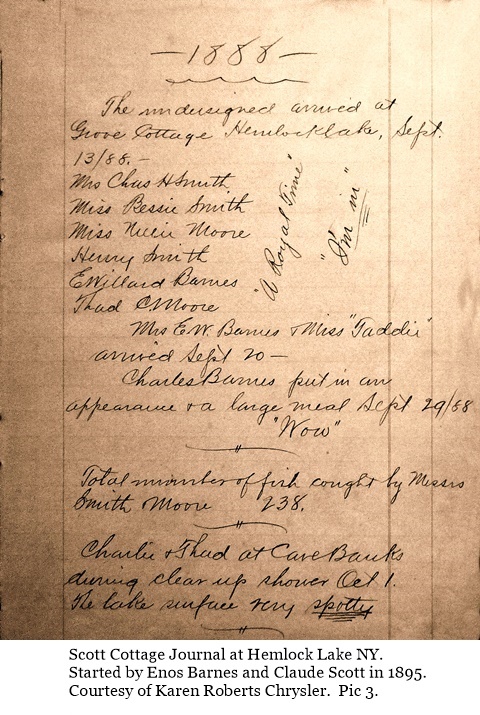 —1888—
The undersigned arrived at
Grove Cottage Hemlock Lake, Sept.
13/88.—
Mrs Chas H Smith
Miss Bessie Smith
Miss Nellie Moore
Henry Smith
E Willard Barnes
Thad C. Moore
"A Royal Time"
"I'm in"
Mrs E.W. Barnes & Miss "Taddie"
arrived Sept 20—
Charles Barnes put in an
appearance & a large meal Sept 29/88
"Wow"
Total number of fish caught by Messrs
Smith Moore 238.
Charlie & Thad at Cave Banks
during clear up shower Oct 1.
The lake surface very spotty
Scott Cottage Journal at Hemlock Lake NY.
Started by Enos Barnes and Claude Scott in 1895.
Courtesy of Karen Roberts Chrysler. Pic 3.